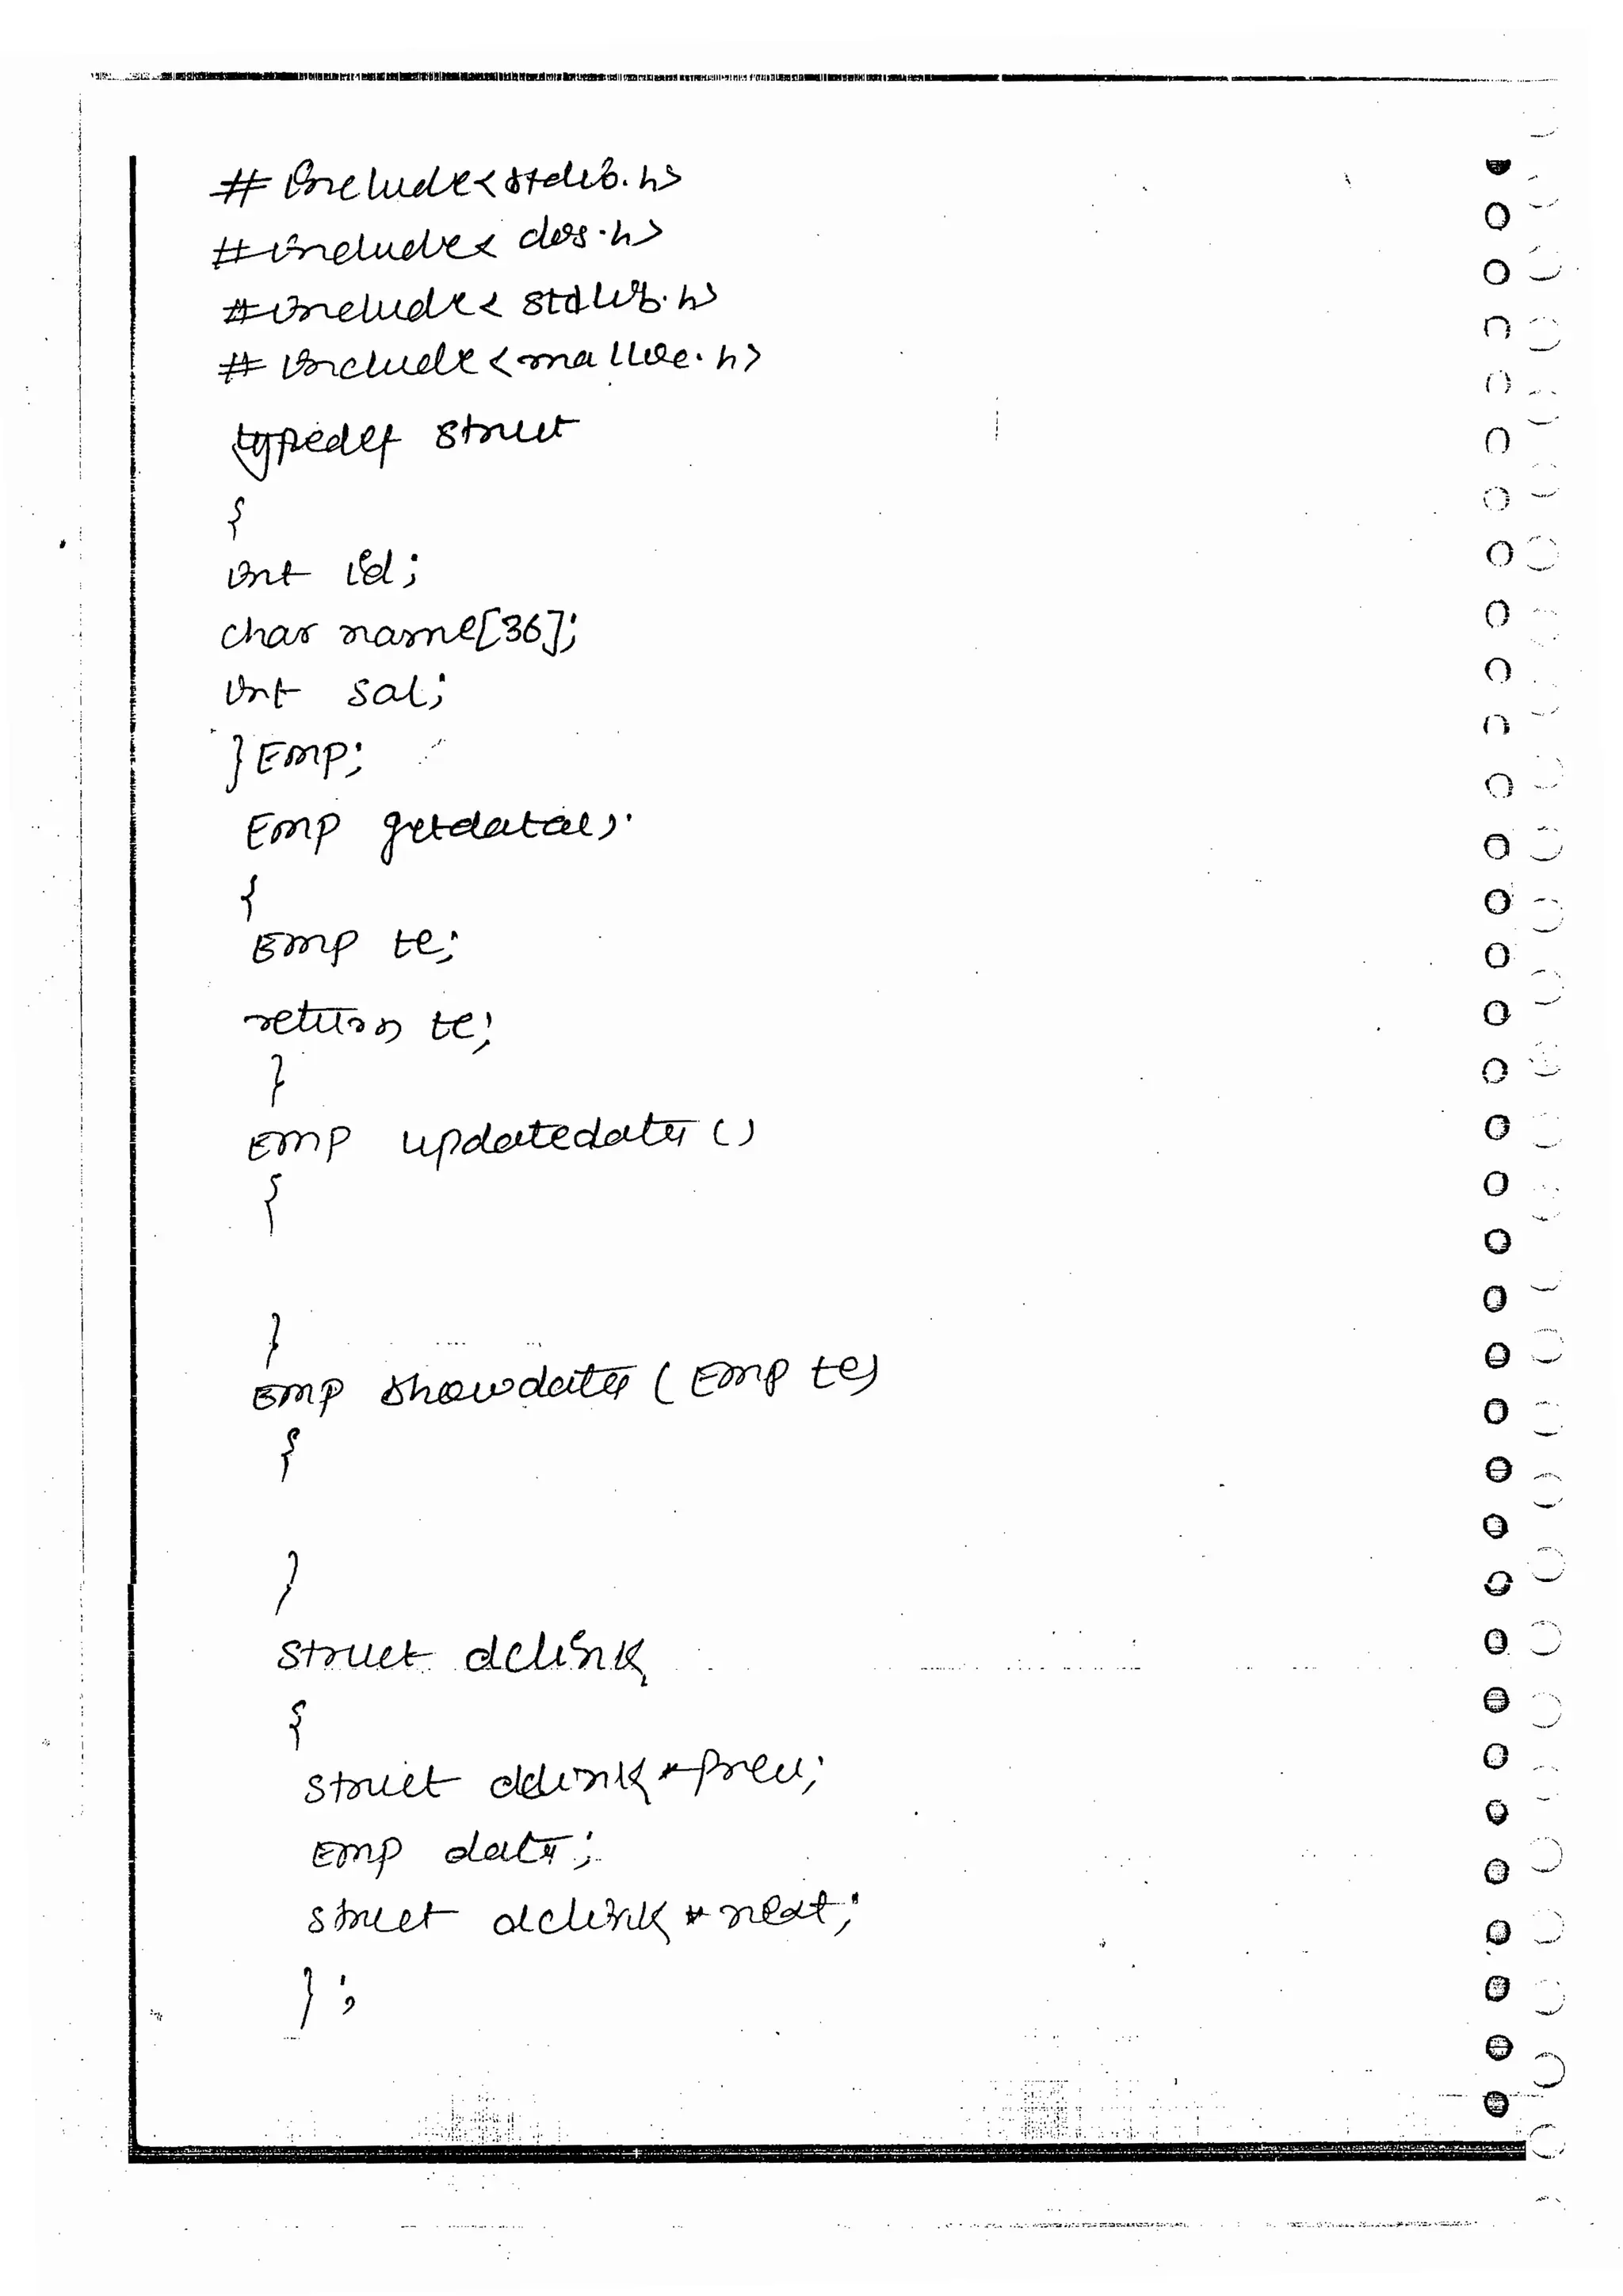 #include<stdlib.h>
#include< dos.h>
#include< stdlib.h>
#include<malloc.h>
typedef struct
{
int id;
char name[36];
int sal;
}Emp;
Emp getdata()
{
Emp te;
return te;
}
Emp updatedata()
{
}
Emp showdata (Emp te)
{
}
struct dclink
{
struct dclink *prev;
Emp data;
struct dclink *next;
};